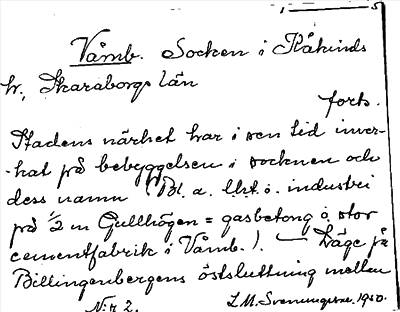 1 5
Våmb. Socken i Kåkinds
hr, Skaraborgs län
forts.
Stadens närhet har i sen tid inver-
-kat på bebyggelsen i socknen och
dess namn (Bl. a. industri
på ½ m Gullhögen = gasbetong o. stor
cementfabrik i Våmb.). — Läge på
Billingenbergens östsluttning mellan
N:r 2. L.M. Svenungsson. 1950.